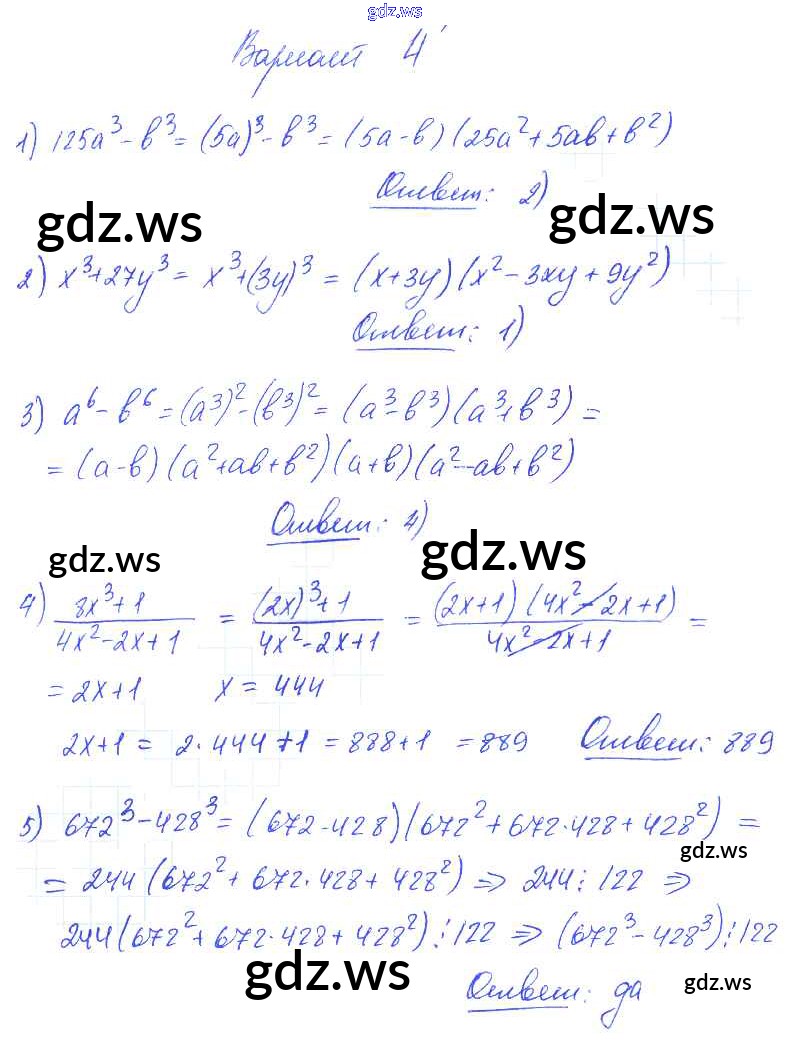 gdz.ws
Вариант 4
1) 125a³ - b³ = (5a)³ - b³ = (5a - b)(25a² + 5ab + b²)
Ответ: 2)
gdz.ws gdz.ws
2) x³ + 27y³ = x³ + (3y)³ = (x + 3y)(x² - 3xy + 9y²)
Ответ: 1)
3) a⁶ - b⁶ = (a³)² - (b³)² = (a³ - b³)(a³ + b³) =
= (a - b)(a² + ab + b²)(a + b)(a² - ab + b²)
Ответ: 4)
gdz.ws gdz.ws
4) (8x³ + 1)/(4x² - 2x + 1) = ((2x)³ + 1)/(4x² - 2x + 1) = ((2x + 1)(4x² - 2x + 1))/(4x² - 2x + 1) =
= 2x + 1 x = 444
2x + 1 = 2·444 + 1 = 888 + 1 = 889 Ответ: 889
5) 672³ - 428³ = (672 - 428)(672² + 672·428 + 428²) =
gdz.ws
= 244(672² + 672·428 + 428²) ⇒ 244 ⋮ 122 ⇒
244(672² + 672·428 + 428²) ⋮ 122 ⇒ (672³ - 428³) ⋮ 122
gdz.ws gdz.ws
Ответ: да